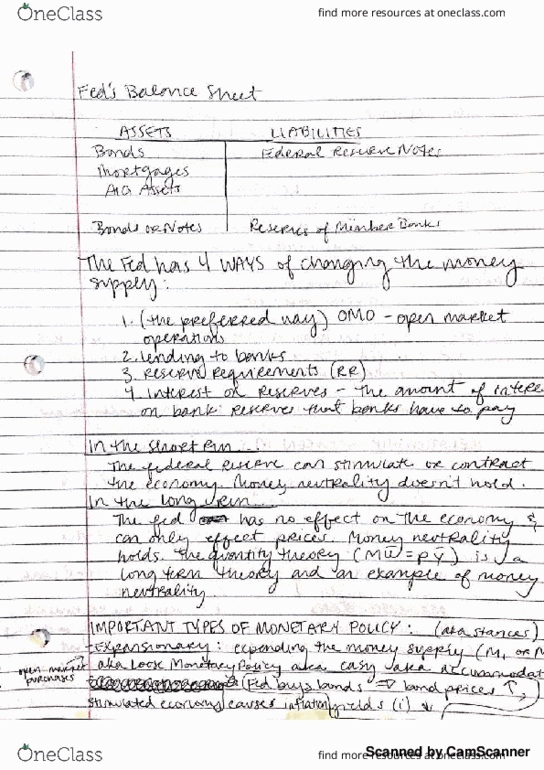 OneClass
find more resources at oneclass.com
Fed's Balance Sheet
ASSETS LIABILITIES
Bonds Federal Reserve Notes
Mortgages
AIG Assets
Bonds or Notes Reserves of Member Banks
The Fed has 4 WAYS of changing the money
supply:
1. (the preferred way) OMO - open market
operations
2. lending to banks
3. Reserve Requirements (RR)
4. interest on reserves - the amount of intere
on bank reserves that banks have to pay
In the short run...
The federal reserve can stimulate or contract
the economy. Money neutrality doesn't hold.
In the long run...
The fed has no effect on the economy &
can only effect prices. Money neutrality
holds. The quantity theory (Mū = pȲ) is a
long term theory and an example of money
neutrality.
IMPORTANT TYPES OF MONETARY POLICY: (aka stances)
- Expansionary: expending the money supply (M, or M
aka Loose Monetary Policy aka easy aka accomodat
open market
purchases
Fed buys bonds ⇒ bond prices ↑,
stimulated economy causes inflation yields (i) ↓
OneClass
find more resources at oneclass.com
Scanned by CamScanner